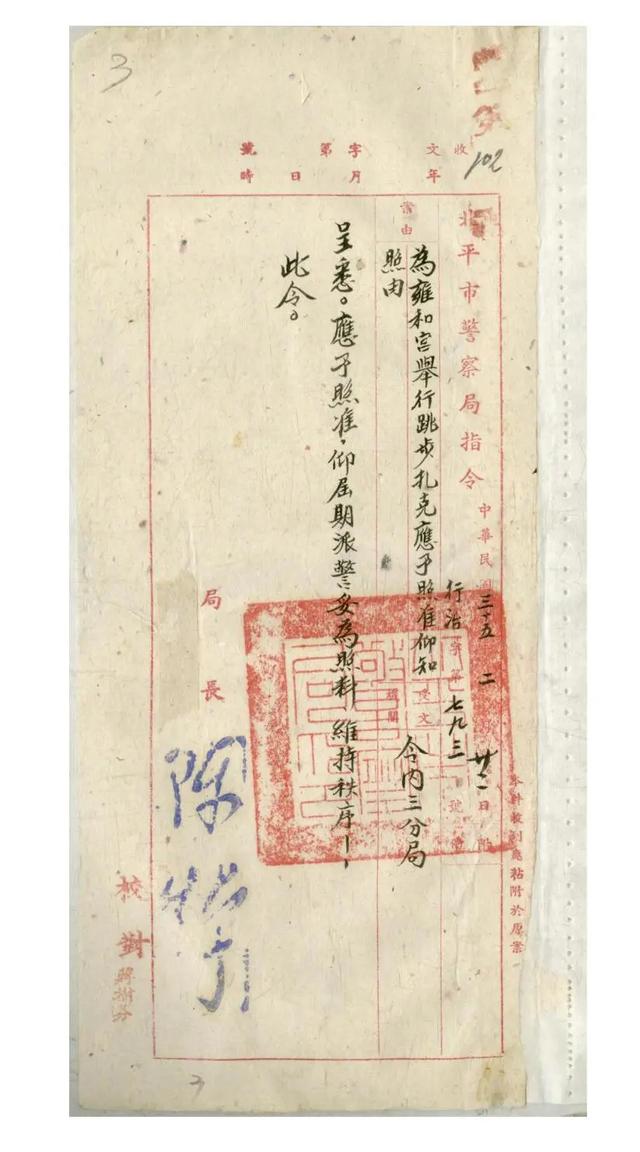 3
102
收文 字第 號
年 月 日 時
北平市警察局指令
中華民國三十五 二 廿二日
行治字第七九三號
本件收到應粘附於原案
案由
為雍和宮舉行跳步扎克應予照准仰知
照由
令內三分局
呈悉。應予照准，仰屆期派警妥為照料，維持秩序——
此令。
局長
陳焯
校對
蔣樹芬
3